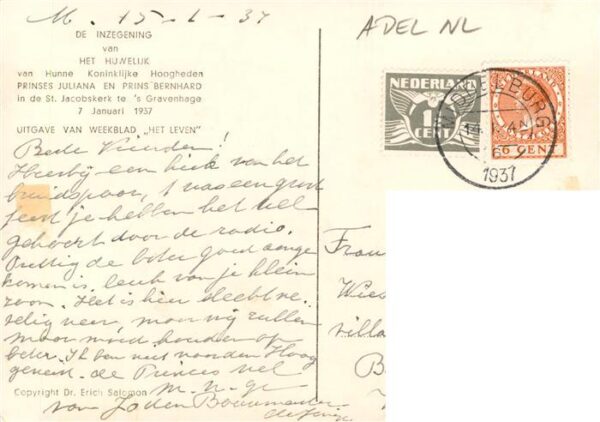 M. 15-1-37
ADEL NL
DE INZEGENING
van
HET HUWELIJK
van Hunne Koninklijke Hoogheden
PRINSES JULIANA EN PRINS BERNHARD
in de St. Jacobskerk te 's Gravenhage
7 Januari 1937
UITGAVE VAN WEEKBLAD „HET LEVEN"
NEDERLAND
1
CENT
6 CEN
1937
Beste Vrienden!
Hierbij een kiek van het
bruidspaar, 't was een groot
feest je hebben het wel
gehoord door de radio.
Prettig de boter goed aange
komen is. leuk van je klein
zoon. Het is hier slecht
weer, maar wij zullen
maar moed houden op
beter. Ik ben niet naar den Haag
geweest. de Princes wel
m. n. gr
van Joden
Copyright Dr. Erich Salomon
Frau
Wies
villa
B